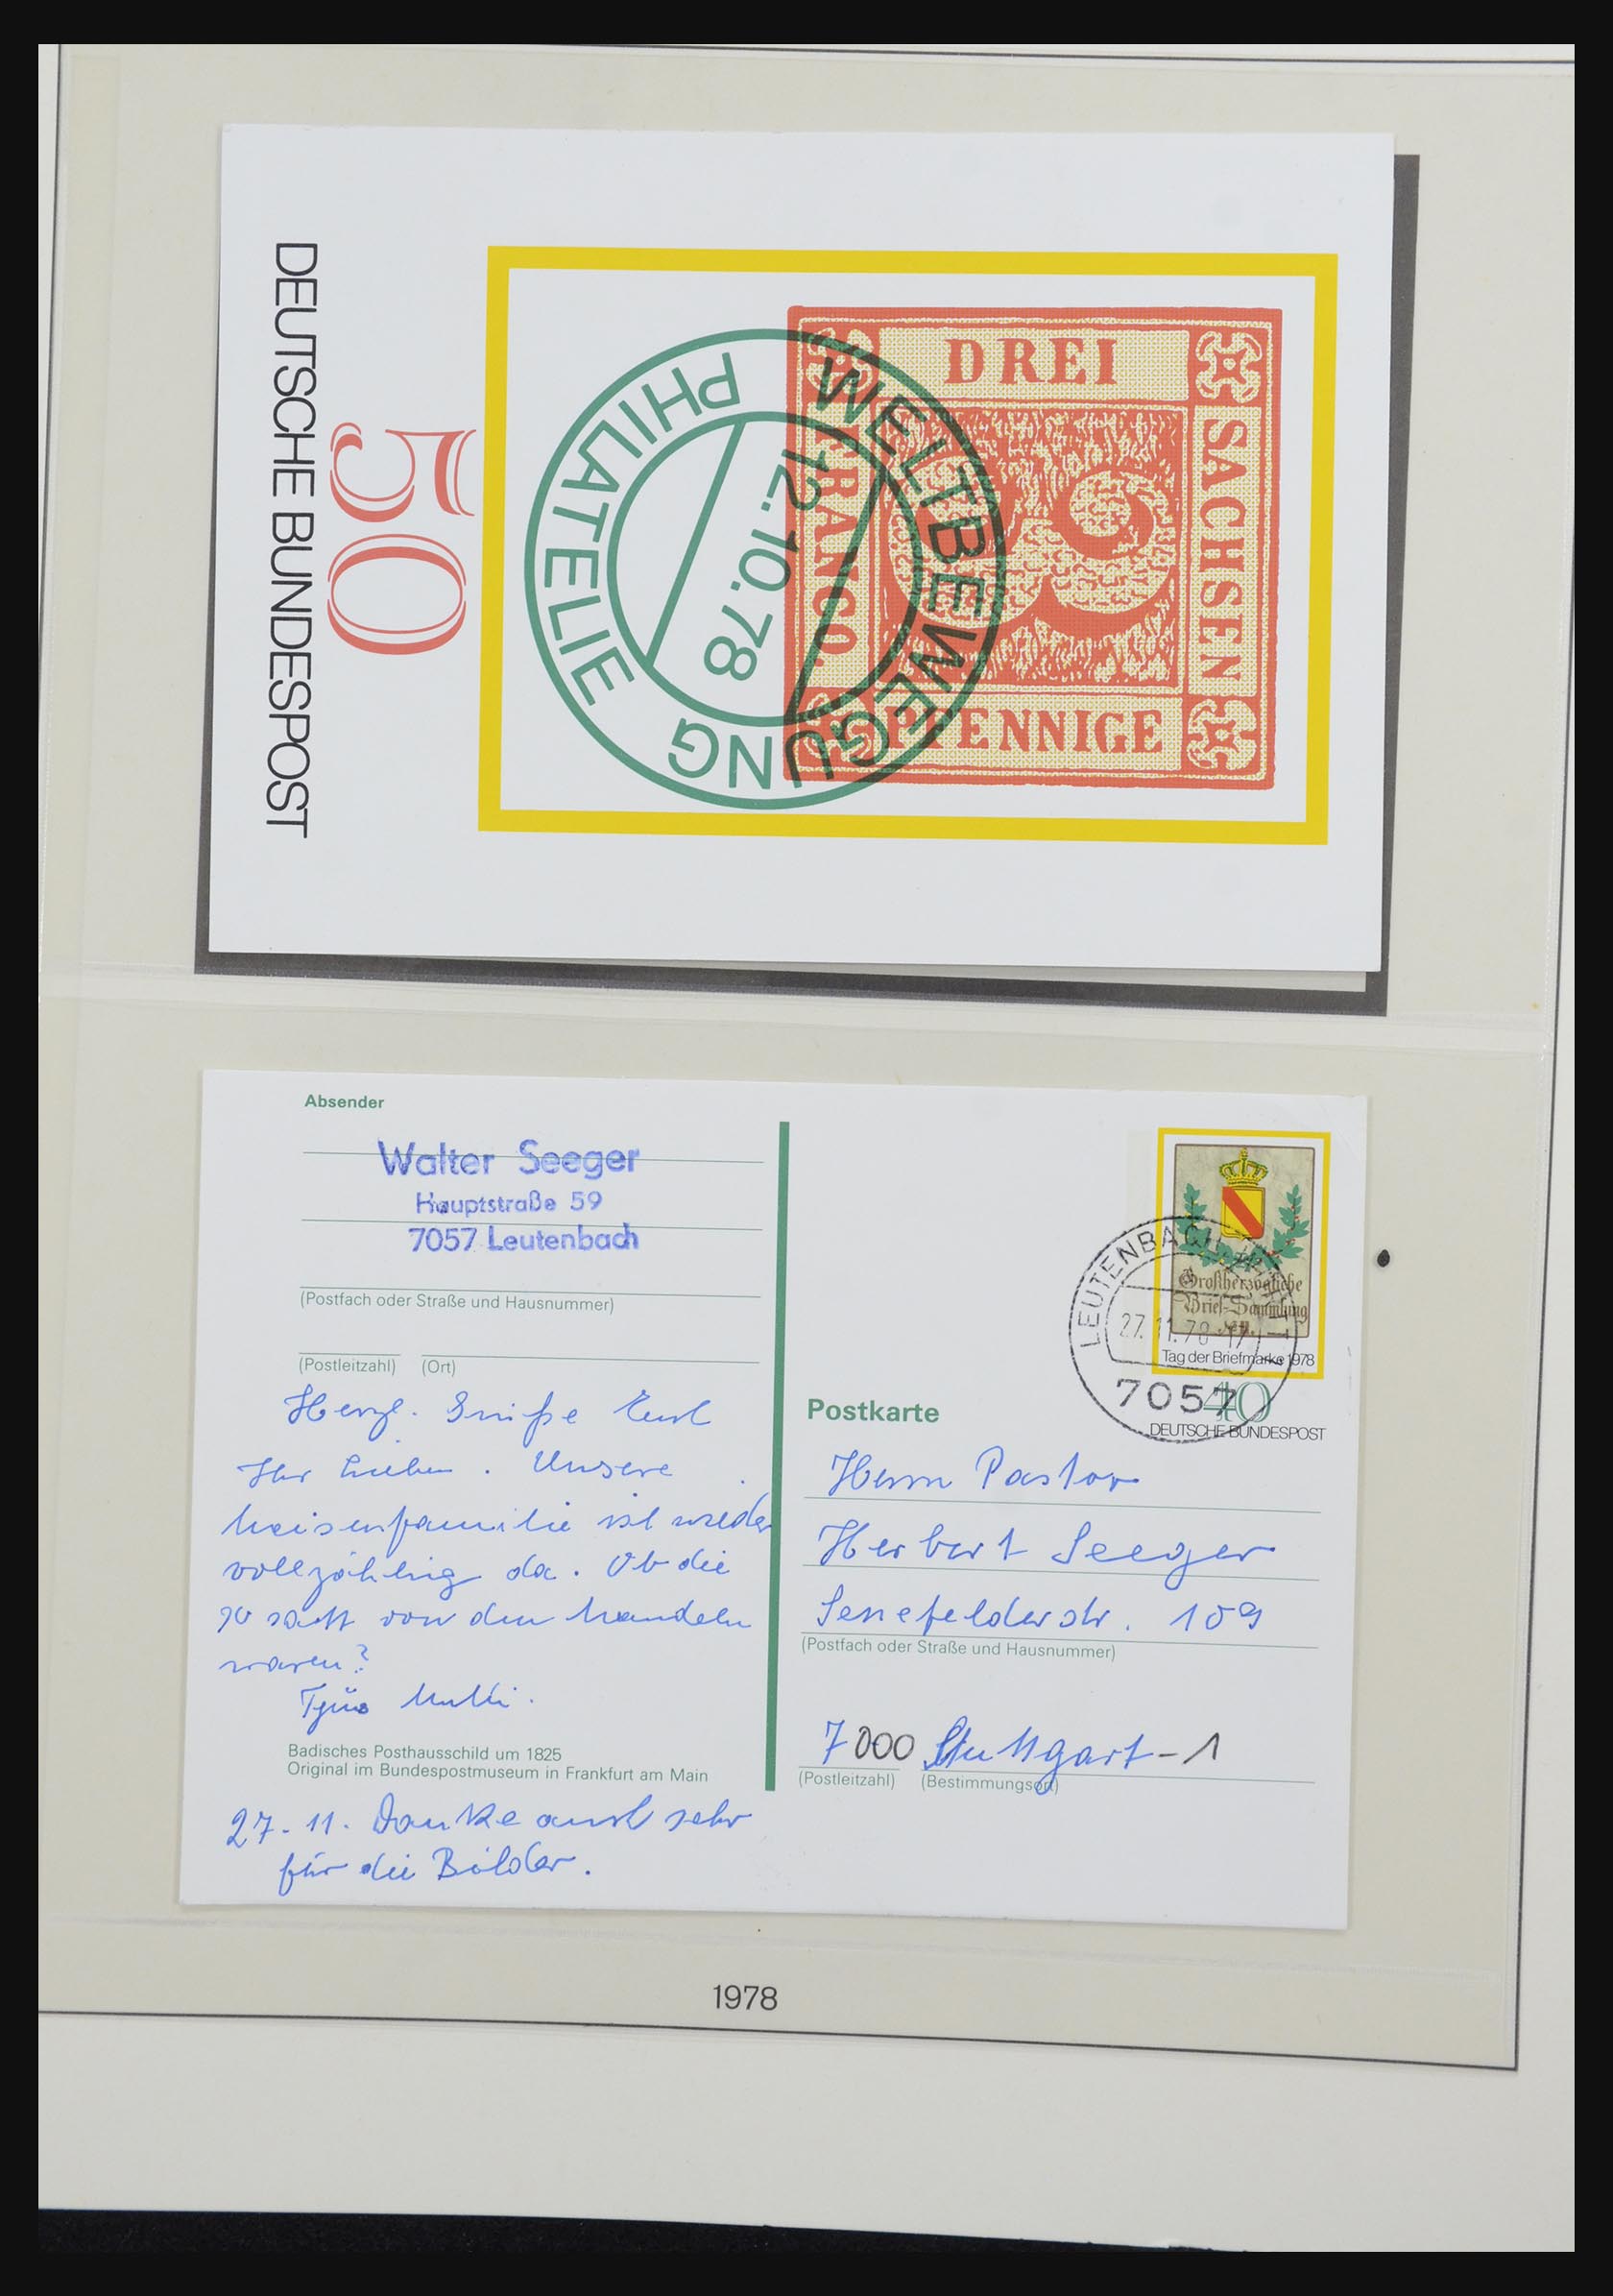 DEUTSCHE BUNDESPOST
50
DREI
SACHSEN
PFENNIGE
FRANCO.
3
PHILATELIE
WELTBEWEGUNG
12.10.78
Absender
Walter Seeger
Hauptstraße 59
7057 Leutenbach
(Postfach oder Straße und Hausnummer)
(Postleitzahl) (Ort)
Herzl. Grüße Euch
Ihr Lieben. Unsere
Meisenfamilie ist wieder
vollzählig da. Ob die
so satt von den Mandeln
waren?
Badisches Posthausschild um 1825
Original im Bundespostmuseum in Frankfurt am Main
27. 11. Danke auch sehr
für die Bilder.
Großherzogliche
Brief-Sammlung
Tag der Briefmarke 1978
40
DEUTSCHE BUNDESPOST
LEUTENBACH
27.11.78-17
7057
Postkarte
Herrn Pastor
Herbert Seeger
Senefelderstr. 109
(Postfach oder Straße und Hausnummer)
7000 Stuttgart-1
(Postleitzahl) (Bestimmungsort)
1978